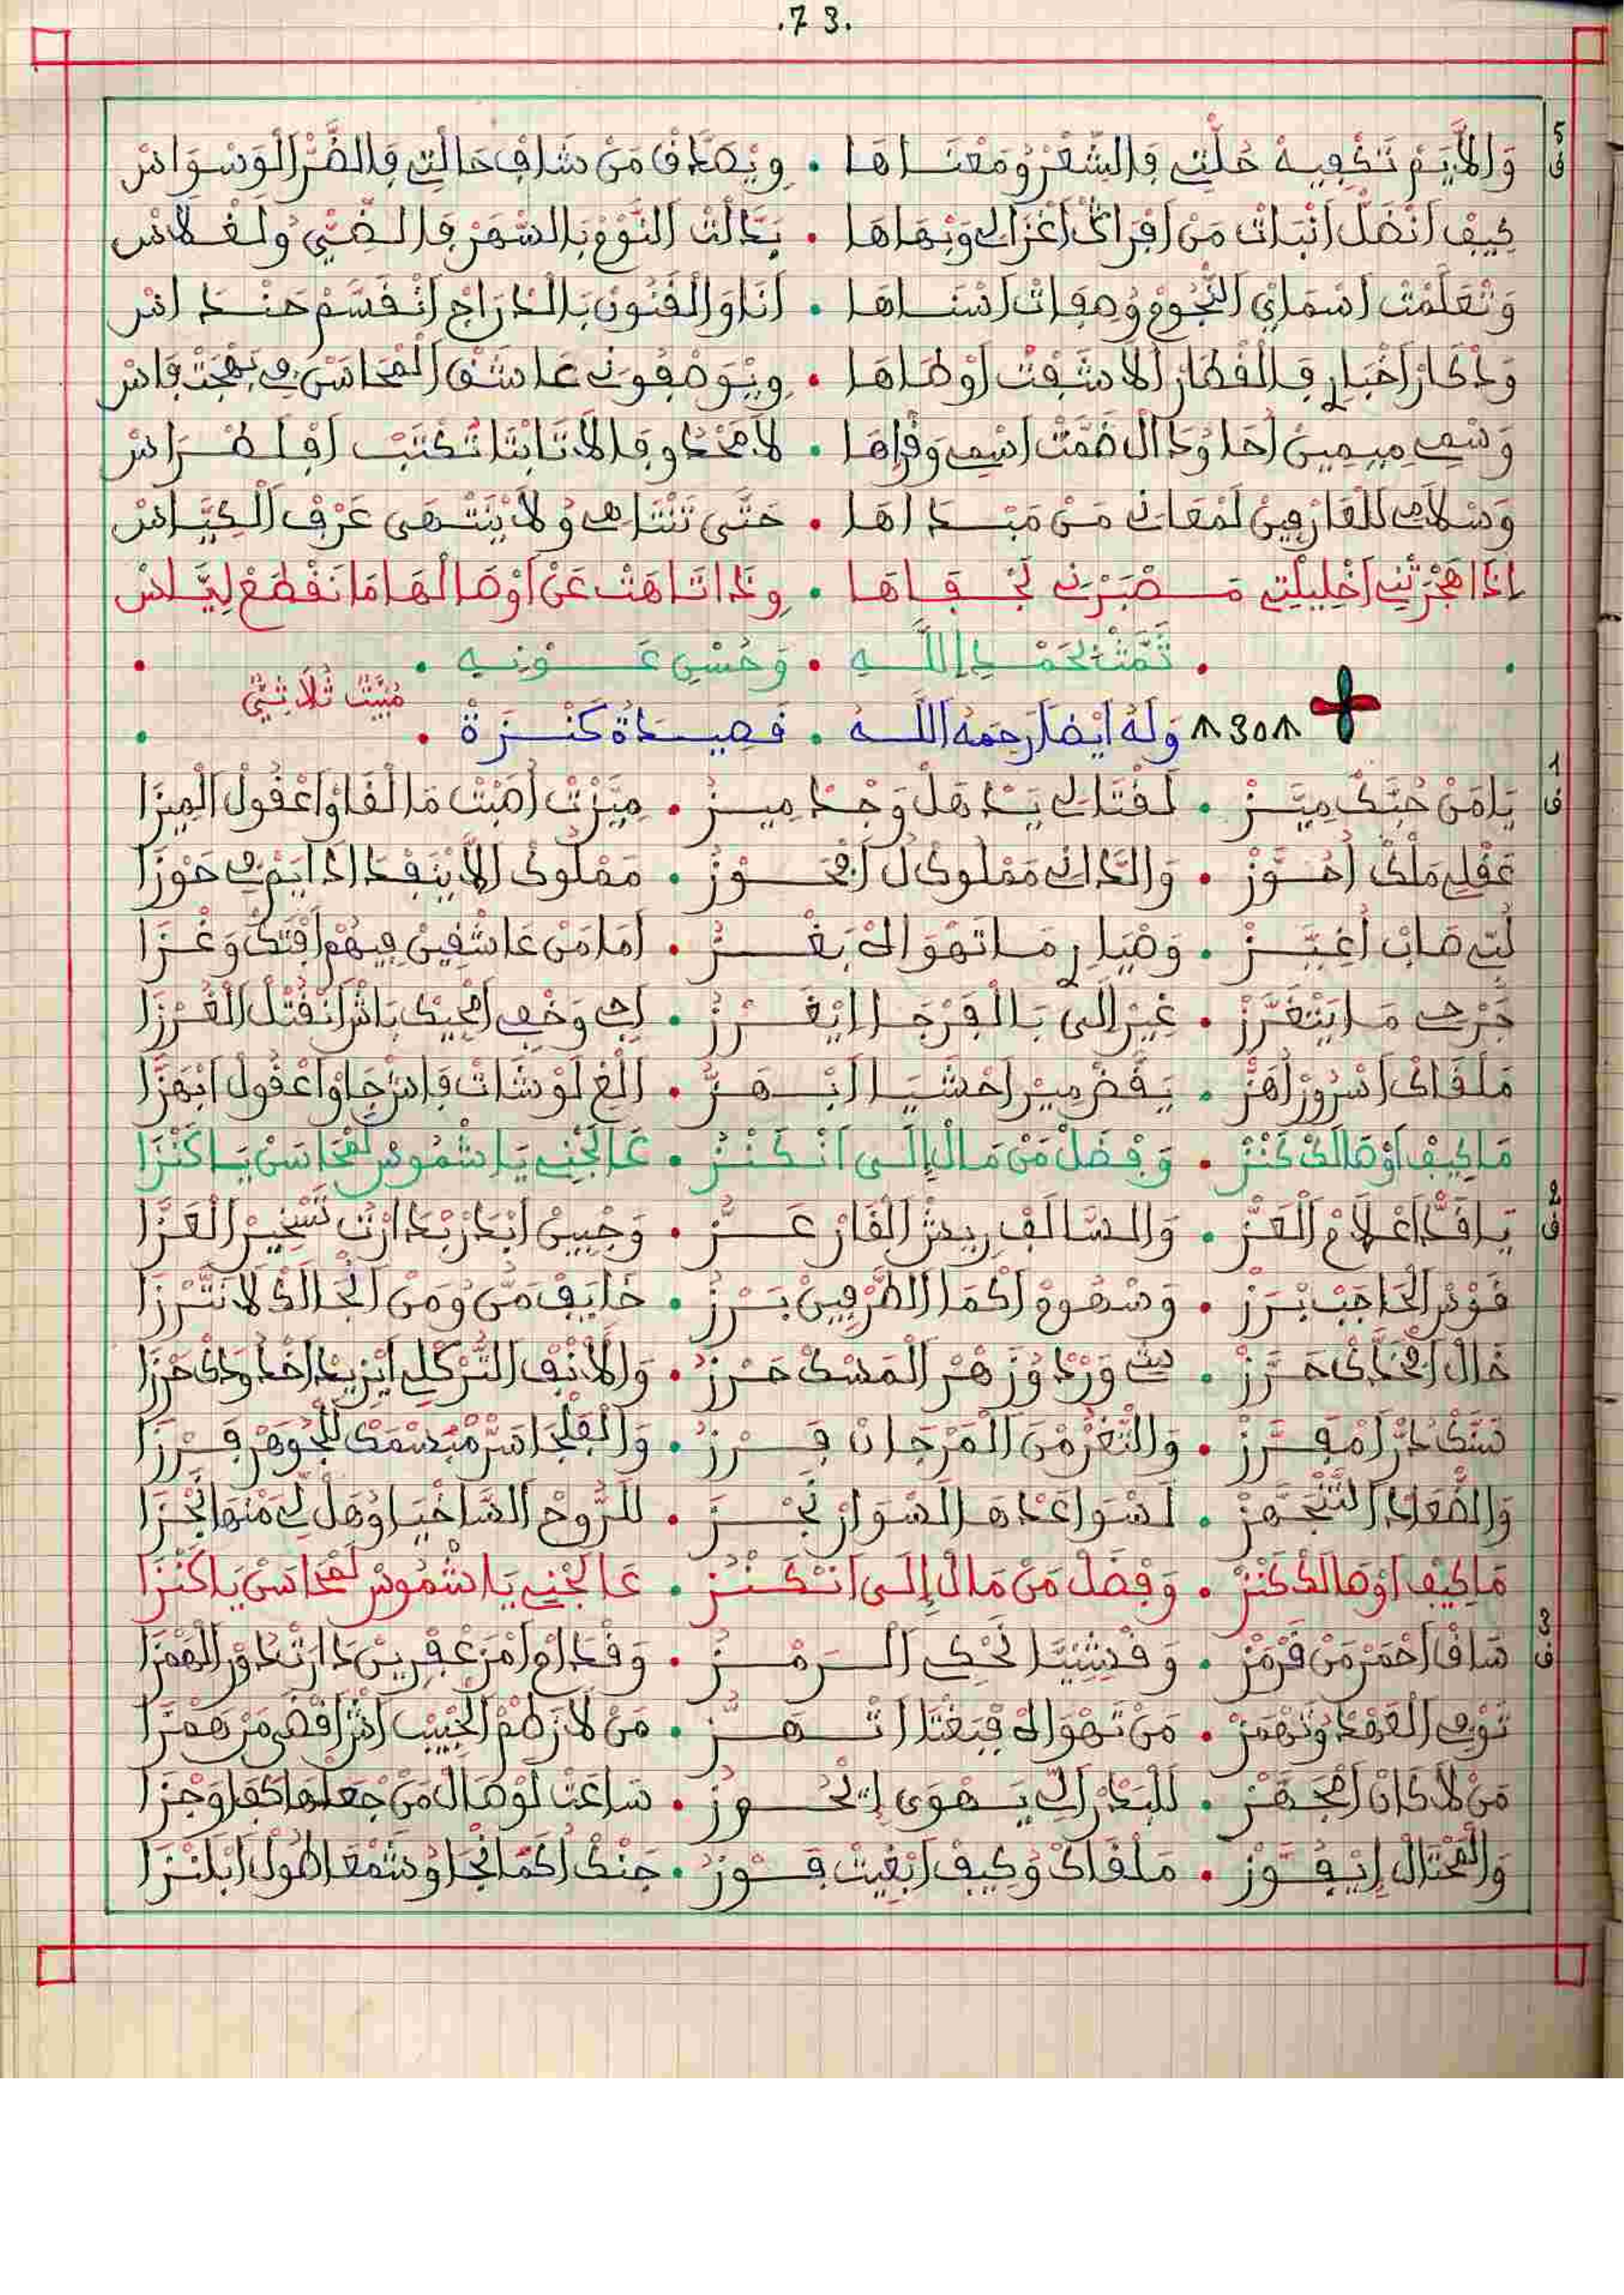 .73.
وَالْأَيَّمْ تَكْفِيهْ حُلّْتِي فَالشّْعَرْ وُمَعْنَاهَا • وِيْصَدَّقْ مَنْ شَافْ حَالْتِي فَالضُّرّْ الْوَسْوَاسْ
كِيفْ أَنْضَلّْ أَنْبَاتْ مَنْ أَفْرَاكْ أَغْزَالِي وَبْهَاهَا • بَدَّالْتْ النُّوْمْ بَالسّْهَرْ فَالضِّيْ وَلَغْلَاسْ
وَتْعَلَّمْتْ أَسْمَايْ النّْجُومْ وُصِفَاتْ أَسْنَاهَا • أَنَا وَالْفَنُونْ بَالدّْرَاجْ أَنْقَسَّمْ حَنْدَاسْ
وَدْكَارْ أَخْبَارِي فَالْقْطَارْ أَلَا شَفْتْ أَوْطَاهَا • وِيْوَصْفُونِي عَاشَقْ الْمْحَاسَنْ فِي بَهْجَتْ فَاسْ
وَسْمِي مِيمِينْ أَحَا وُدَالْ ضَمَّتْ أَسْمِي وَقْرَاهَا • لَامْحَدُّو فَالَا تَابْتَا تُكْتَبْ أَفْلَطْرَاسْ
وَسْلَامِي لَلْعَارْفِينْ لَمْعَانِي مَنْ مَبْدَاهَا • حَتَّى تَنْتَاهِي وُلَا يَنْتْهَى عَرْفْ الْكِيَّاسْ
إِذَا هَجْرَتْنِي أَخْلِيلْتِي مَصْبَرْنِي لَجْفَاهَا • وِذَا تَاهَتْ عَنْ أَوْصَالْهَا مَا نَقْطَعْ لِيَّاسْ
• تَمَّتْ بْحَمْدِ اللَّهِ • وَحُسْنِ عَوْنِهِ •
مْبَيَّتْ ثُلَاثِيّْ
٨30٨ وَلَهُ أَيْضًا رَحِمَهُ اللَّهُ • قَصِيدَةُ كَنْزَةْ •
يَا مَنْ حُبَّكْ مِيَّزْ • لَفْتَالِي يَدْهَلْ وَجْدْ مِيزْ • مِيَّزْتْ أَصَبْتْ مَا لْقَاوْ أَعْقُولْ الْمِيزَا
عَقْلِي مَلْكْ أَحُوَّزْ • وَالدَّاتِي مَمْلُوكْ لْ أَمْحَوزْ • مَمْلُوكْ أَلَّا يْنَفْدْ إِذَا يَرْمِي حَوْزَا
لُبِّي صَابْ أَغِيَّزْ • وَصْيَارِ مَا تَهْوَاكْ بَغْزْ • أَمَا مَنْ عَاشْقِينْ فِيهُمْ أَفْتَكْ وَغْزَا
جَرْحِي مَا يَتْغَرَّزْ • غِيرْ إِلَى بَالْفَرْجَا إِيْغَرْزْ • إِجِي وَخْفِي أَمْجِيكْ بَاشْ أَنْفَتَّلْ الْغُرْزَا
مَلْقَاكْ أَسْرُورْ أَهَزّْ • يَقْضْ مِيرْ أَحْشَيَا أَبْهَزّْ • الْغِ لَوْشَاتْ فَاشْ جَاوْ أَعْقُولْ أَبْهَزَّا
مَا كِيفْ أَوْصَالَكْ كَنْزْ • وَفْضَلْ مَنْ مَالْ إِلَى أَنْكَنْزْ • عَالْجْنِي يَا شْمُوسْ لَمْحَاسَنْ يَا كَنْزَا
يَا قَدّْ أَعْلَامْ الْعَزّْ • وَالسَّالَفْ رِيشْ الْفَازْ عَزّْ • وَجْبِينْ أَبْدَرْ بْدَارْتْ تَسْخِيرْ الْعَزَّا
قَوْسْ الْحَاجَبْ بْرَزْ • وَسْهُومْ أَكْمَا الطَّرْفِينْ بَرْزْ • خَايَفْ مَنّْ وُمَنْ الْجَالَكْ لَا نَتَّرْزَا
خَالْ أَفْخَدَّكْ حَرَّزْ • بِيتْ وَرْدْ وُزَهْرْ الْمَسْكْ حَرْزْ • وَالْأَنْفْ التُّرْكْلِي إِيْزِيدْ أَخْدُودَكْ حْرْزَا
سَنَّكْ دُرّْ أَمْفَرَّزْ • وَالثَّغْرْ مْنَ الْمَرْجَانْ فِرْزْ • وَالْفَلْجَا سَرّْ مَبْسْمَكْ لَلْجُوهَرْ فَرْزَا
وَالضّْعَادْ التَّتْجَهَّزْ • لَسْوَاعَدْ هَا السّْوَارْ نَجْزْ • لَلرُّوحْ السَّاخْيَا وُهَلْ لِي مَنْهَا نَجْزَا
مَا كِيفْ أَوْصَالَكْ كَنْزْ • وَفْضَلْ مَنْ مَالْ إِلَى أَنْكَنْزْ • عَالْجْنِي يَا شْمُوسْ لَمْحَاسَنْ يَا كَنْزَا
سَاقْ أَحْمَرْ مَنْ قَرْمَزْ • وَقْشِيَّا تَحْكِي الرَّمْزْ • وَقْدَامْ أَمْزَعْفْرِينْ دَارَتْ دَوْرْ الْهَمْزَا
تَوْمِي الْعَمْدْ وُتَهْمَزْ • مَنْ تَهْوَاكْ فْبَغْتَا أَتْهَزّْ • مَنْ لَازَطْمْ الْحْبِيبْ أَشْ أَقْضَى مَنْ هَمْزَا
مَنْ لَا كَانْ أَمْجَهَّزْ • لَلْبَدْرْ إِلِّي يَهْوَى إِيْحُوزْ • سَاعَتْ لَوْصَالْ مَنْ جْعَلْهَا كِفْهَا وَجْزَا
وَالْمْحْتَالْ إِيْفُوَّزْ • مَلْقَاكْ وُكِيفْ أَبْغِيتْ فَوْزْ • حَنْكْ أَكْمَا نْجَا وُشَمْعَا طُولْ أَبْلَنْزَا